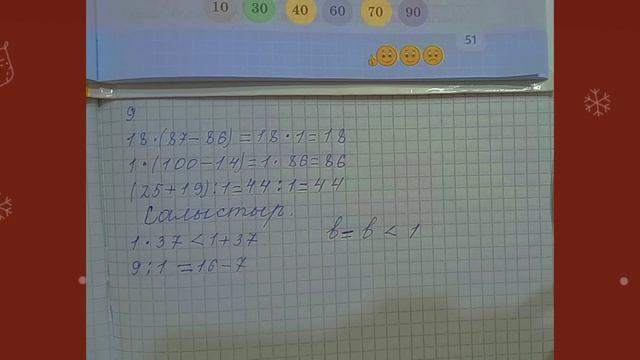 10 30 40 60 70 90
51
9
18·(87-86)=18·1=18
1·(100-14)=1·86=86
(25+19):1=44:1=44
Салыстыр.
1·37<1+37
в=в<1
9:1=16-7